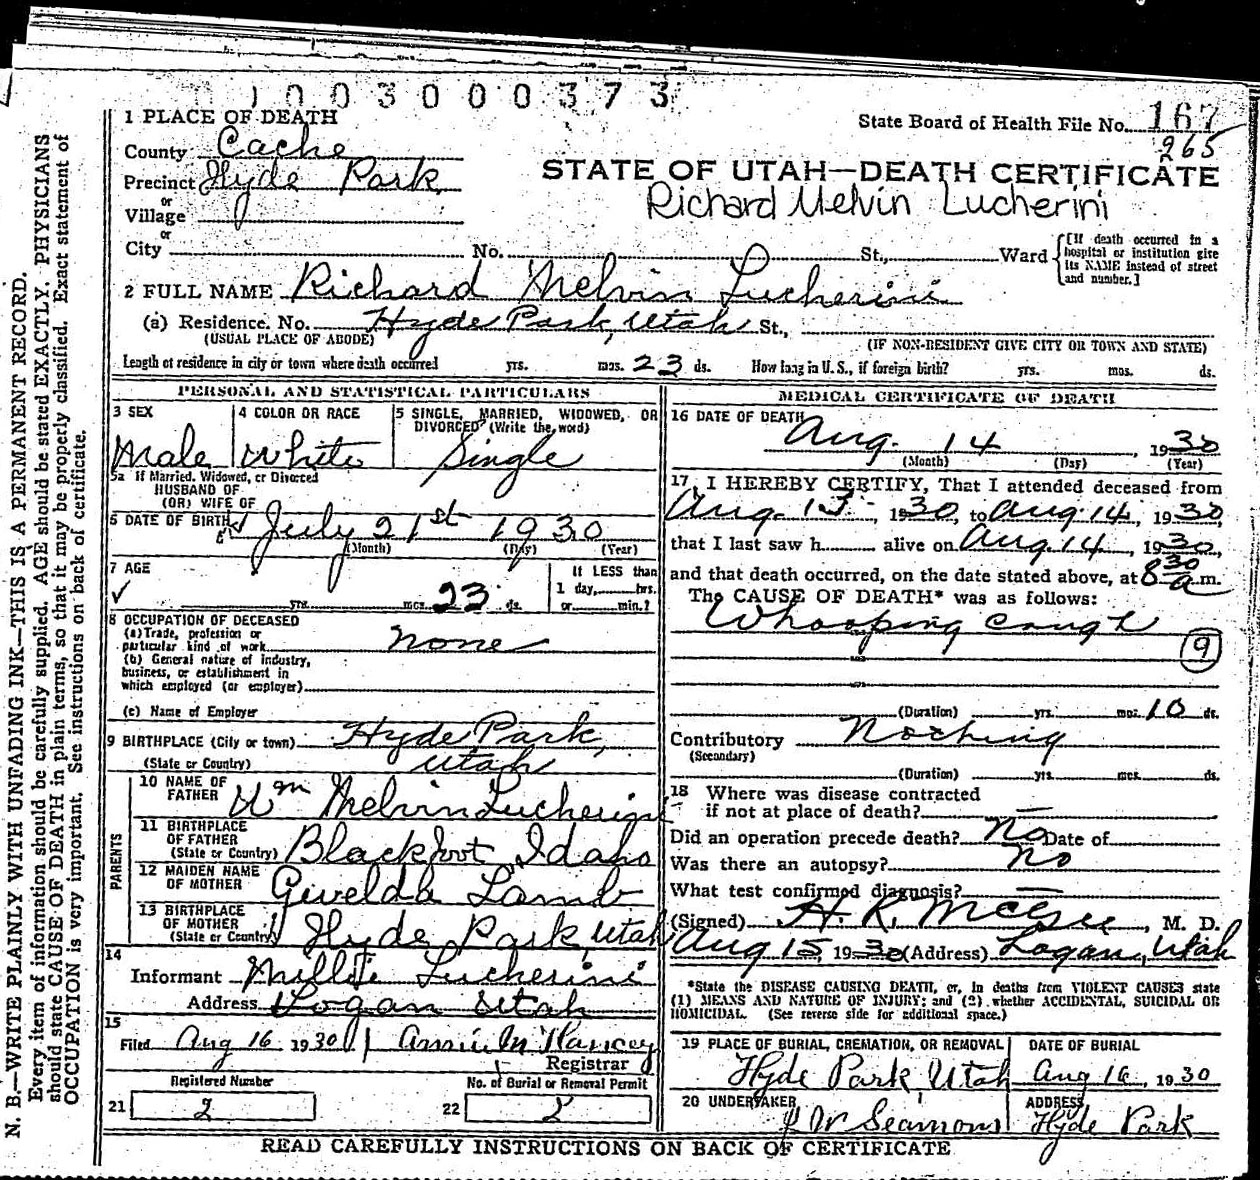 1 0 0 3 0 0 0 3 7 3
1 PLACE OF DEATH
State Board of Health File No. 167
965
County Cache
Precinct Hyde Park
or
Village
or
City No. St., Ward
[If death occurred in a hospital or institution give its NAME instead of street and number.]
STATE OF UTAH—DEATH CERTIFICATE
Richard Melvin Lucherini
2 FULL NAME Richard Melvin Lucherini
(a) Residence. No. Hyde Park, Utah St.,
(USUAL PLACE OF ABODE) (IF NON-RESIDENT GIVE CITY OR TOWN AND STATE)
Length of residence in city or town where death occurred yrs. mos. 23 ds. How long in U. S., if foreign birth? yrs. mos. ds.
PERSONAL AND STATISTICAL PARTICULARS
3 SEX
Male
4 COLOR OR RACE
White
5 SINGLE, MARRIED, WIDOWED, OR
DIVORCED (Write the word)
Single
5a If Married, Widowed, or Divorced
HUSBAND OF
(OR) WIFE OF
6 DATE OF BIRTH July 21st 1930
(Month) (Day) (Year)
7 AGE
yrs. mos. 23 ds.
If LESS than
1 day, hrs.
or min.?
8 OCCUPATION OF DECEASED
(a) Trade, profession or
particular kind of work none
(b) General nature of industry,
business, or establishment in
which employed (or employer)
(c) Name of Employer
9 BIRTHPLACE (City or town) Hyde Park,
(State or Country) Utah
PARENTS
10 NAME OF
FATHER Wm Melvin Lucherini
11 BIRTHPLACE
OF FATHER
(State or Country) Blackfoot Idaho
12 MAIDEN NAME
OF MOTHER Givelda Lamb
13 BIRTHPLACE
OF MOTHER
(State or Country) Hyde Park, Utah
14
Informant Lucherini
Address Logan Utah
15
Filed Aug 16 1930
Registrar
Registered Number
21 2
No. of Burial or Removal Permit
22 2
MEDICAL CERTIFICATE OF DEATH
16 DATE OF DEATH
Aug. 14, 1930
(Month) (Day) (Year)
17 I HEREBY CERTIFY, That I attended deceased from
Aug. 13, 1930, to Aug. 14, 1930,
that I last saw h alive on Aug. 14, 1930,
and that death occurred, on the date stated above, at 8 30 a.m.
The CAUSE OF DEATH* was as follows:
Whooping cough
9
(Duration) yrs. mos. 10 ds.
Contributory Nothing
(Secondary)
(Duration) yrs. mos. ds.
18 Where was disease contracted
if not at place of death? —
Did an operation precede death? No Date of
Was there an autopsy? No
What test confirmed diagnosis? —
(Signed) H. K. McGee, M. D.
Aug 15, 1930 (Address) Logan, Utah
*State the DISEASE CAUSING DEATH, or, in deaths from VIOLENT CAUSES state
(1) MEANS AND NATURE OF INJURY; and (2) whether ACCIDENTAL, SUICIDAL OR
HOMICIDAL. (See reverse side for additional space.)
19 PLACE OF BURIAL, CREMATION, OR REMOVAL
Hyde Park, Utah
DATE OF BURIAL
Aug 16, 1930
20 UNDERTAKER
Seamons
ADDRESS
Hyde Park
READ CAREFULLY INSTRUCTIONS ON BACK OF CERTIFICATE
N. B.—WRITE PLAINLY WITH UNFADING INK—THIS IS A PERMANENT RECORD.
Every item of information should be carefully supplied. AGE should be stated EXACTLY. PHYSICIANS
should state CAUSE OF DEATH in plain terms, so that it may be properly classified. Exact statement of
OCCUPATION is very important. See instructions on back of certificate.